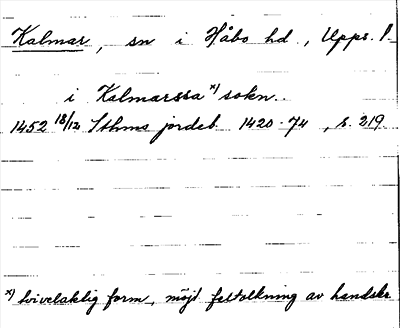 Kalmar, sn i Håbo hd., Upps. l.
i Kalmarssa x) sokn.
1452 18/12 Sthms jordeb. 1420-74, s. 219.
x) tvivelaktig form, möjl. feltolkning av handskr.